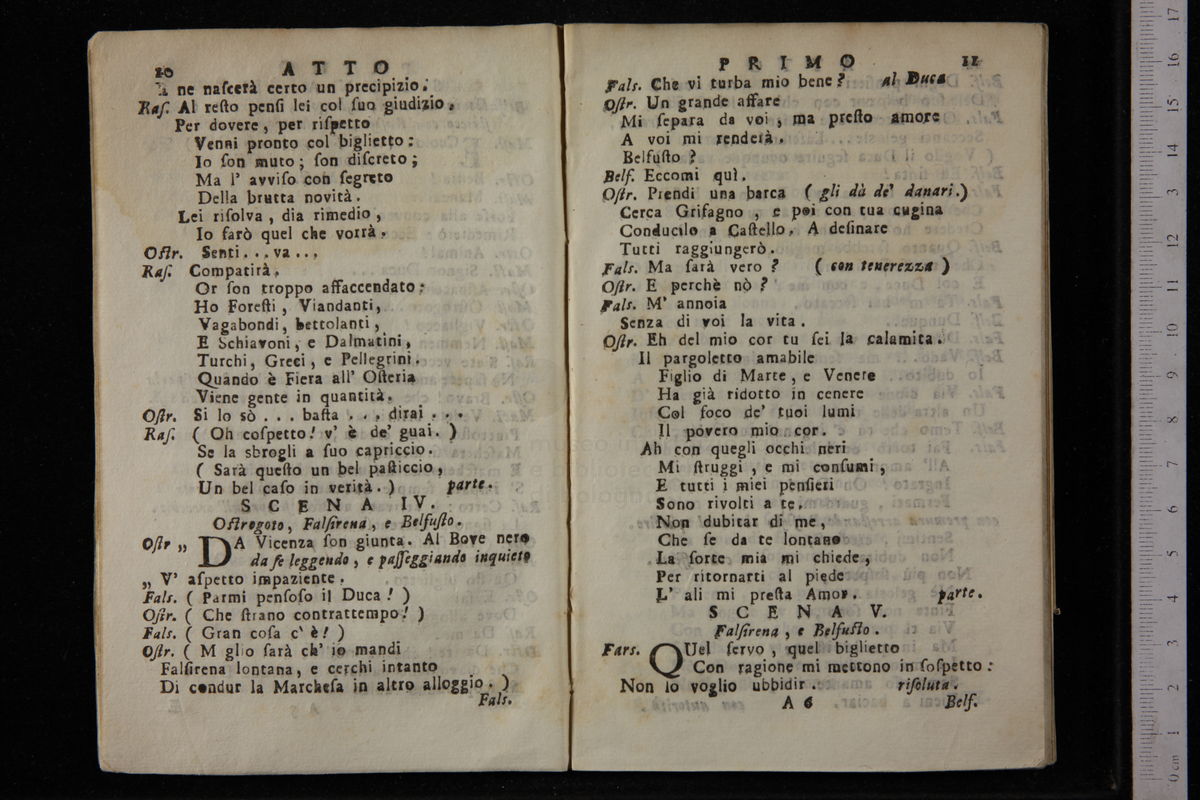 10 ATTO
ne naſcerà certo un precipizio.
Raſ. Al reſto penſi lei col ſuo giudizio.
Per dovere, per riſpetto
Venni pronto col biglietto:
Io ſon muto; ſon diſcreto;
Ma l' avviſo con ſegreto
Della brutta novità.
Lei riſolva, dia rimedio,
Io farò quel che vorrà.
Oſtr. Senti...va...
Raſ. Compatirà.
Or ſon troppo affaccendato:
Ho Foreſti, Viandanti,
Vagabondi, bettolanti,
E Schiavoni, e Dalmatini,
Turchi, Greci, e Pellegrini.
Quando è Fiera all' Oſteria
Viene gente in quantità.
Oſtr. Si lo sò... baſta... dirai...
Raſ. (Oh coſpetto! v' è de' guai.)
Se la sbrogli a ſuo capriccio.
(Sarà queſto un bel paſticcio,
Un bel caſo in verità.) parte.
SCENA IV.
Oſtrogoto, Falſirena, e Belfuſto.
Oſtr „ DA Vicenza ſon giunta. Al Bove nero
da ſe leggendo, e paſſeggiando inquieto
„ V' aſpetto impaziente.
Fals. (Parmi penſoſo il Duca!)
Oſtr. (Che ſtrano contrattempo!)
Fals. (Gran coſa c' è!)
Oſtr. (M glio ſarà ch' io mandi
Falſirena lontana, e cerchi intanto
Di condur la Marcheſa in altro alloggio.)
Fals.
PRIMO 11
Fals. Che vi turba mio bene? al Duca
Oſtr. Un grande affare
Mi ſepara da voi, ma preſto amore
A voi mi renderà.
Belfuſto?
Belf. Eccomi quì.
Oſtr. Prendi una barca (gli dà de' danari.)
Cerca Grifagno, e poi con tua cugina
Conducilo a Caſtello. A deſinare
Tutti raggiungerò.
Fals. Ma ſarà vero? (con tenerezza)
Oſtr. E perchè nò?
Fals. M' annoia
Senza di voi la vita.
Oſtr. Eh del mio cor tu ſei la calamita.
Il pargoletto amabile
Figlio di Marte, e Venere
Ha già ridotto in cenere
Col foco de' tuoi lumi
Il povero mio cor.
Ah con quegli occhi neri
Mi ſtruggi, e mi conſumi,
E tutti i miei penſieri
Sono rivolti a te.
Non dubitar di me,
Che ſe da te lontano
La ſorte mia mi chiede,
Per ritornarti al piede
L' ali mi preſta Amor. parte.
SCENA V.
Falſirena, e Belfuſto.
Fars. QUel ſervo, quel biglietto
Con ragione mi mettono in ſoſpetto:
Non lo voglio ubbidir. riſoluta.
A 6 Belf.